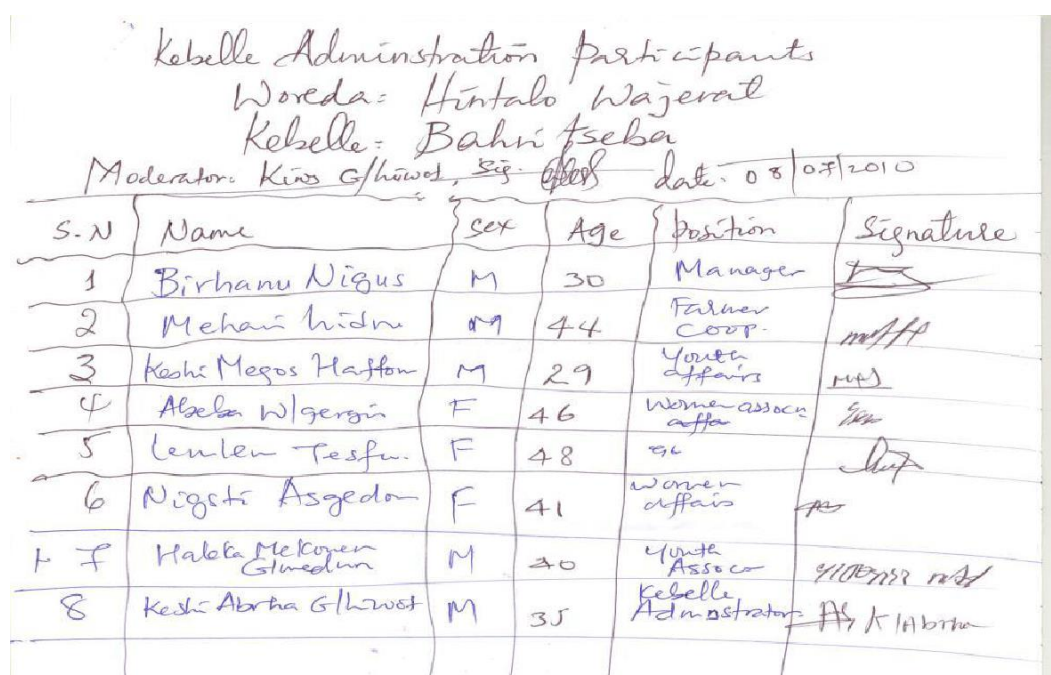 Kebelle Adminstration Participants
Woreda: Hintalo Wajerat
Kebelle: Bahri tseba
Moderator: Kiros G/hiwot, Sig. date: 08/07/2010
S.N Name Sex Age Position Signature
1 Birhanu Nigus M 30 Manager
2 Mehari hidru M 44 Farmer
Coop.
3 Keshi Megos Haftom M 29 Youth
affairs
4 Abeba W/gergis F 46 Women assoc
affa
5 Lemlem Tesfu. F 48
6 Nigsti Asgedom F 41 Women
affais
7 Haleka Mekonen M 40 Youth
Assoco
8 Keshi Abrha G/hiwot M 35 Kebelle
Adminstrator K/Abrha